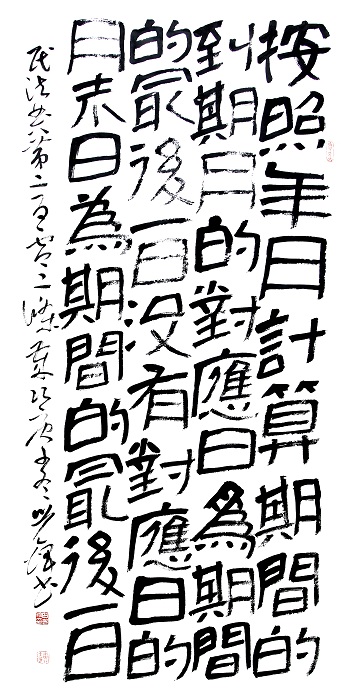 按照年月計算期間的
到期月的對應日為期間
的最後一日没有對應日的
月末日為期間的最後一日
民法典第二百零二條